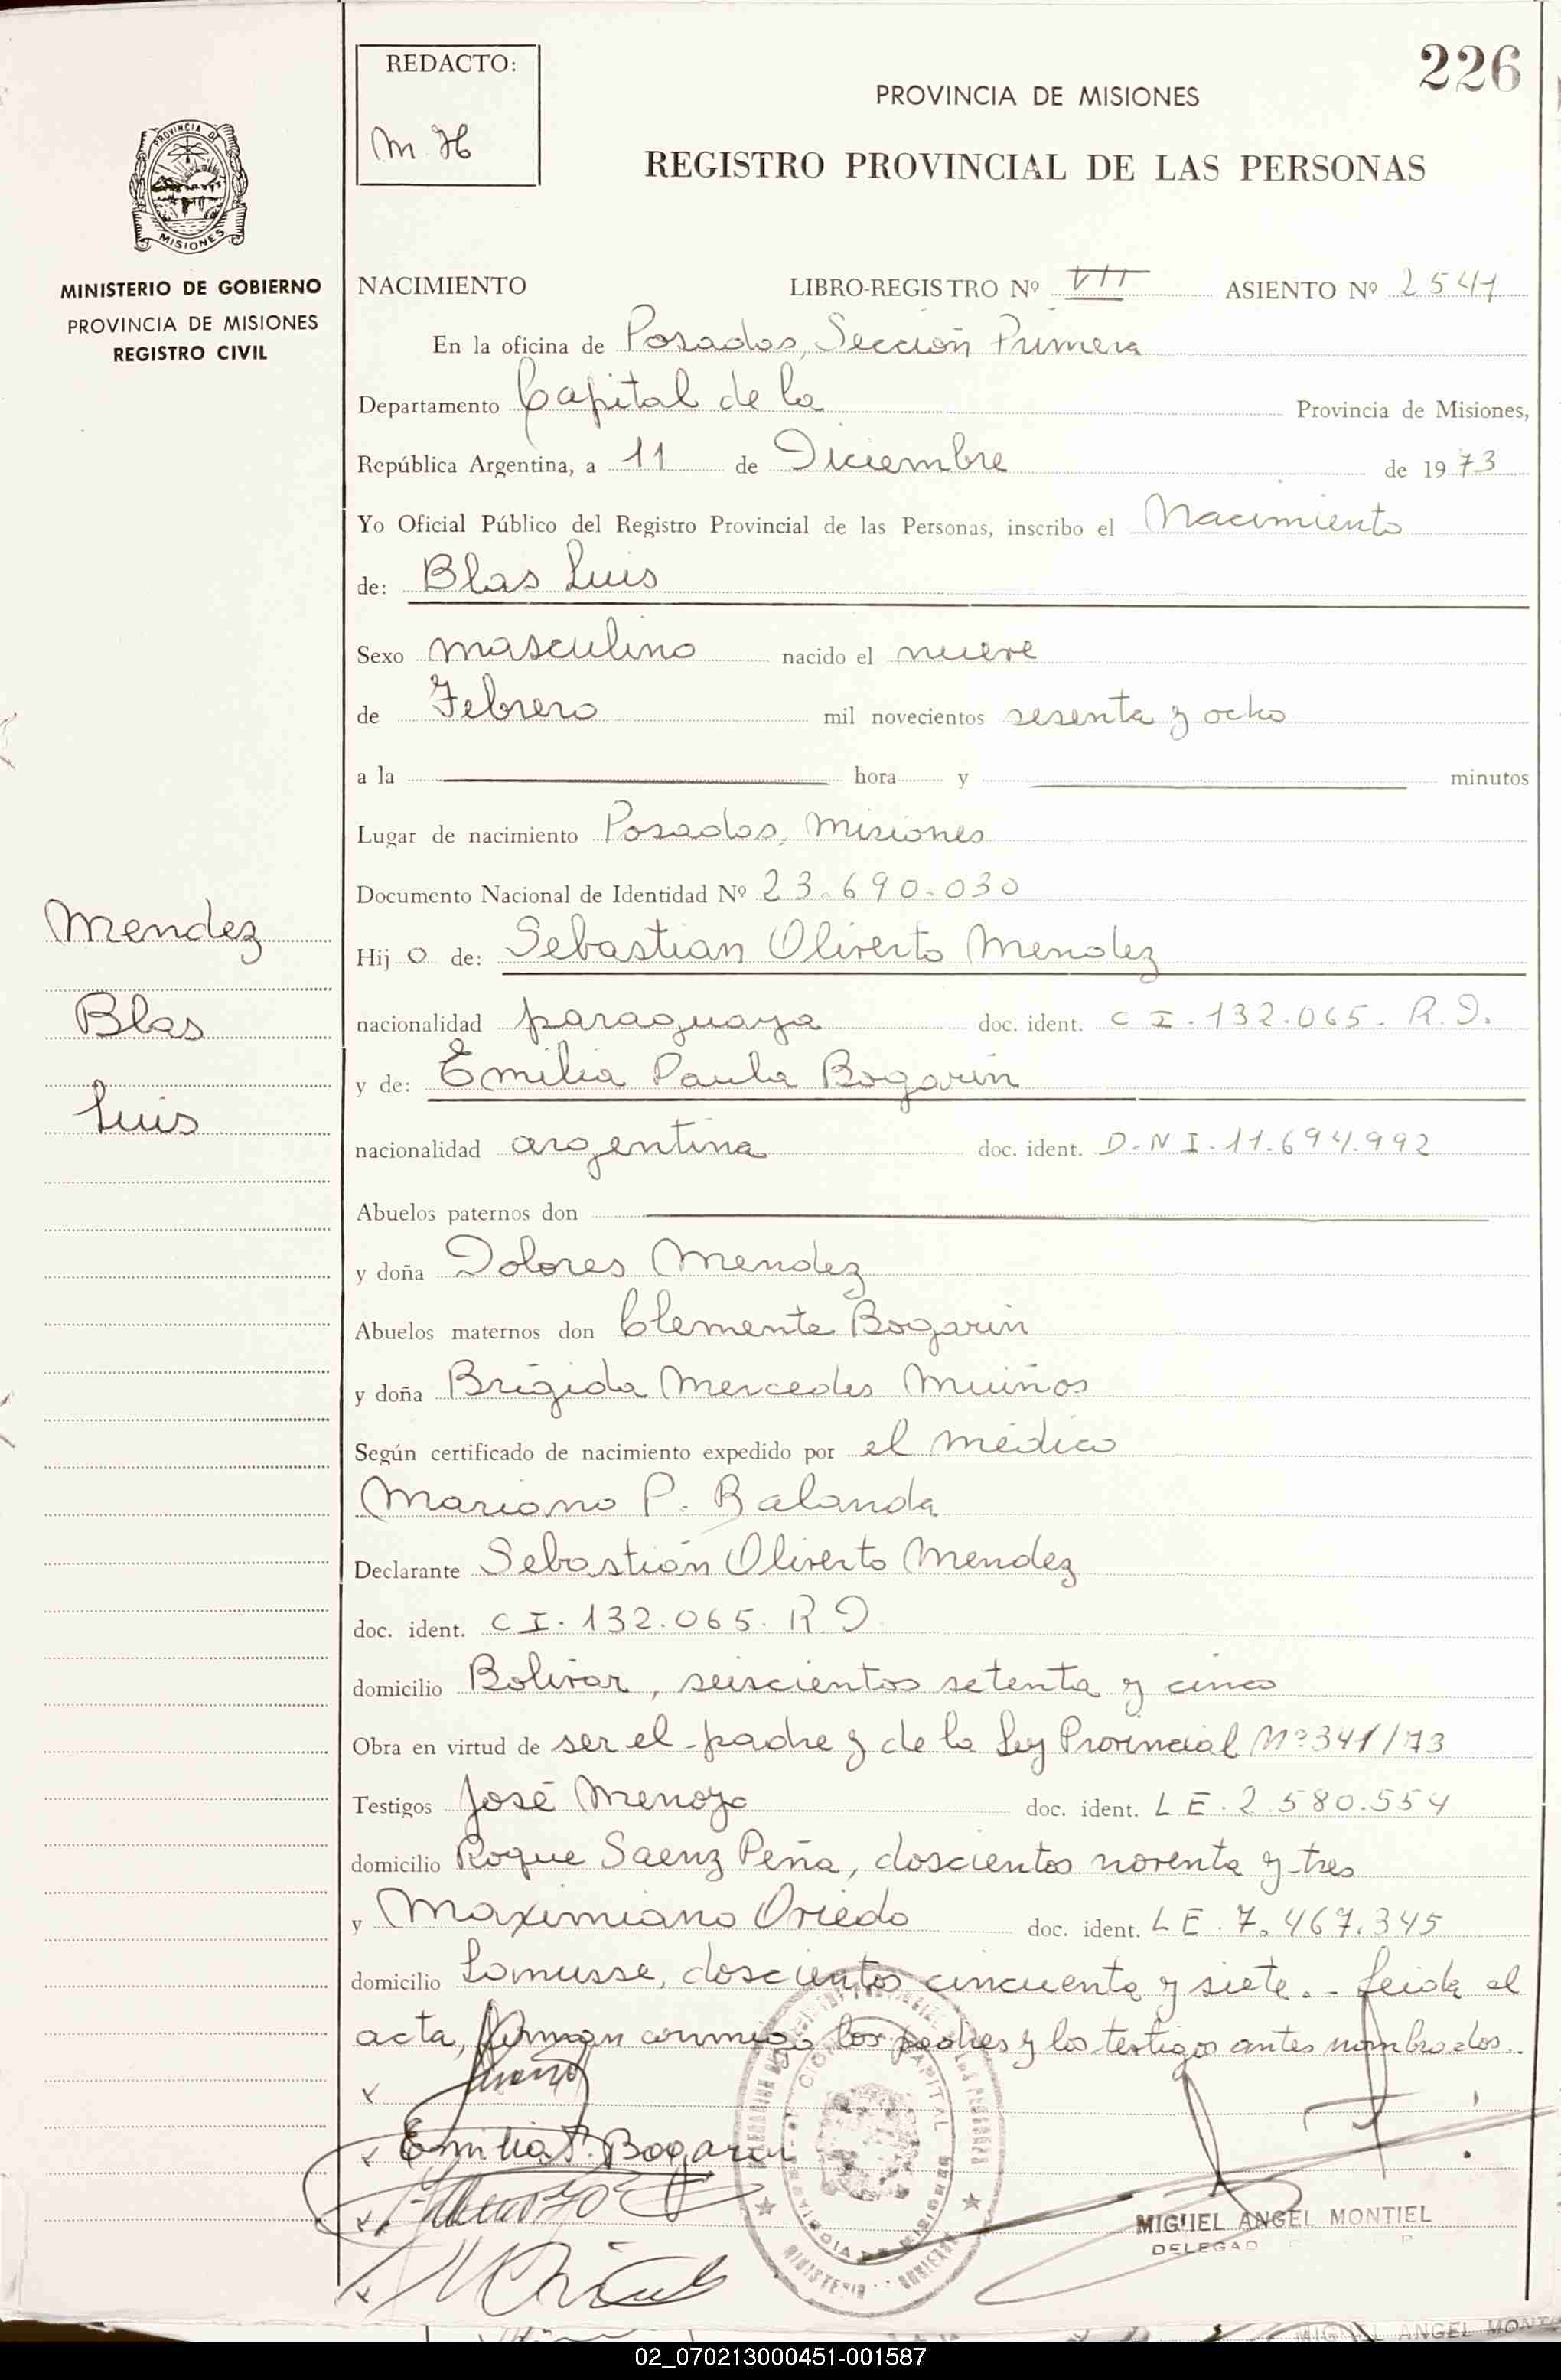 REDACTO:
M H
226
PROVINCIA DE MISIONES
REGISTRO PROVINCIAL DE LAS PERSONAS
PROVINCIA DE
MISIONES
MINISTERIO DE GOBIERNO
PROVINCIA DE MISIONES
REGISTRO CIVIL
NACIMIENTO LIBRO-REGISTRO Nº VII ASIENTO Nº 2541
En la oficina de Posadas, Sección Primera
Departamento Capital de la Provincia de Misiones,
República Argentina, a 11 de Diciembre de 1973
Yo Oficial Público del Registro Provincial de las Personas, inscribo el Nacimiento
de: Blas Luis
Sexo masculino nacido el nueve
de Febrero mil novecientos sesenta y ocho
a la hora y minutos
Lugar de nacimiento Posadas, Misiones
Documento Nacional de Identidad Nº 23.690.030
Mendez
Blas
Luis
Hij o de: Sebastian Oliverto Mendez
nacionalidad paraguaya doc. ident. C I. 132.065. R.D.
y de: Emilia Paula Bogarin
nacionalidad argentina doc. ident. D.N I. 11.694.992
Abuelos paternos don
y doña Dolores Mendez
Abuelos maternos don Clemente Bogarin
y doña Brígida Mercedes Muiños
Según certificado de nacimiento expedido por el médico
Mariano P. Balanda
Declarante Sebastián Oliverto Mendez
doc. ident. C I. 132.065. R D
domicilio Bolivar, seiscientos setenta y cinco
Obra en virtud de ser el padre y de la Ley Provincial Nº 341/73
Testigos José doc. ident. L E. 2.580.554
domicilio Roque Saenz Peña, doscientos noventa y tres
y Maximiano Oviedo doc. ident. L E. 7.467.345
domicilio Lamusse, doscientos cincuenta y siete.- Leida el
acta, firman conmigo los padres y los testigos antes nombrados..
Emilia P. Bogarin
MIGUEL ANGEL MONTIEL
DELEGAD
02_070213000451-001587